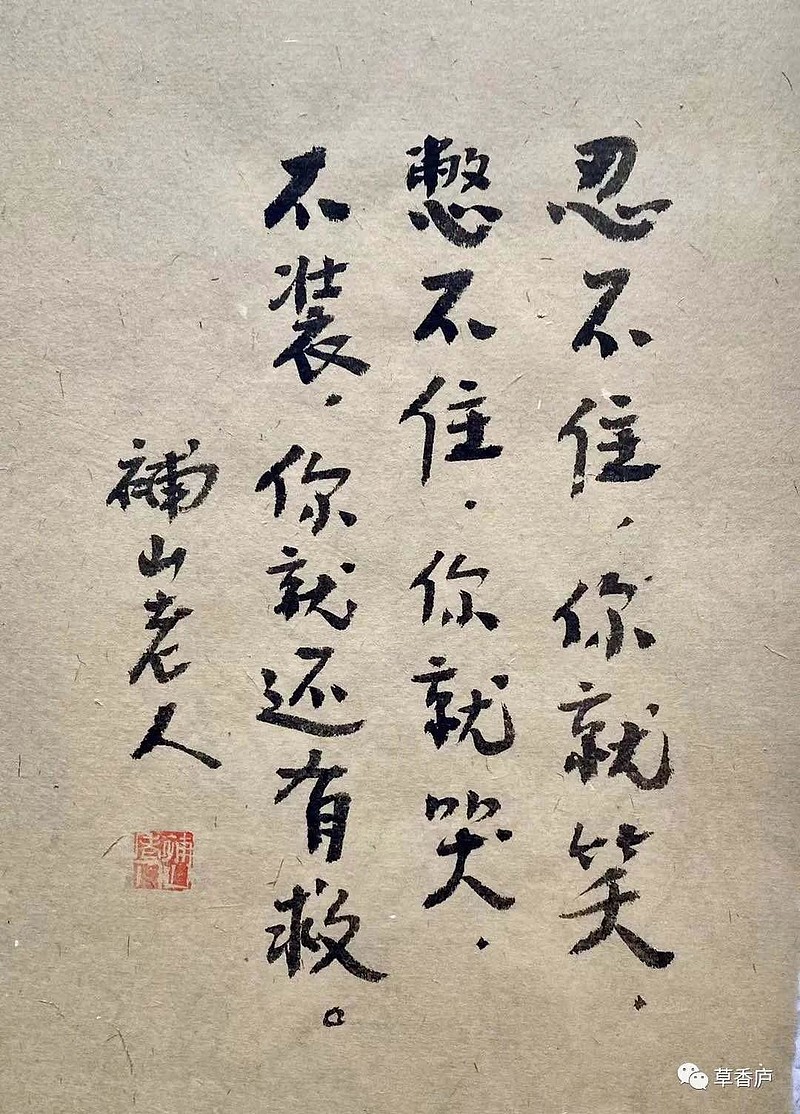 忍不住，你就笑，
憋不住，你就哭，
不装，你就还有救。
補山老人
草香庐